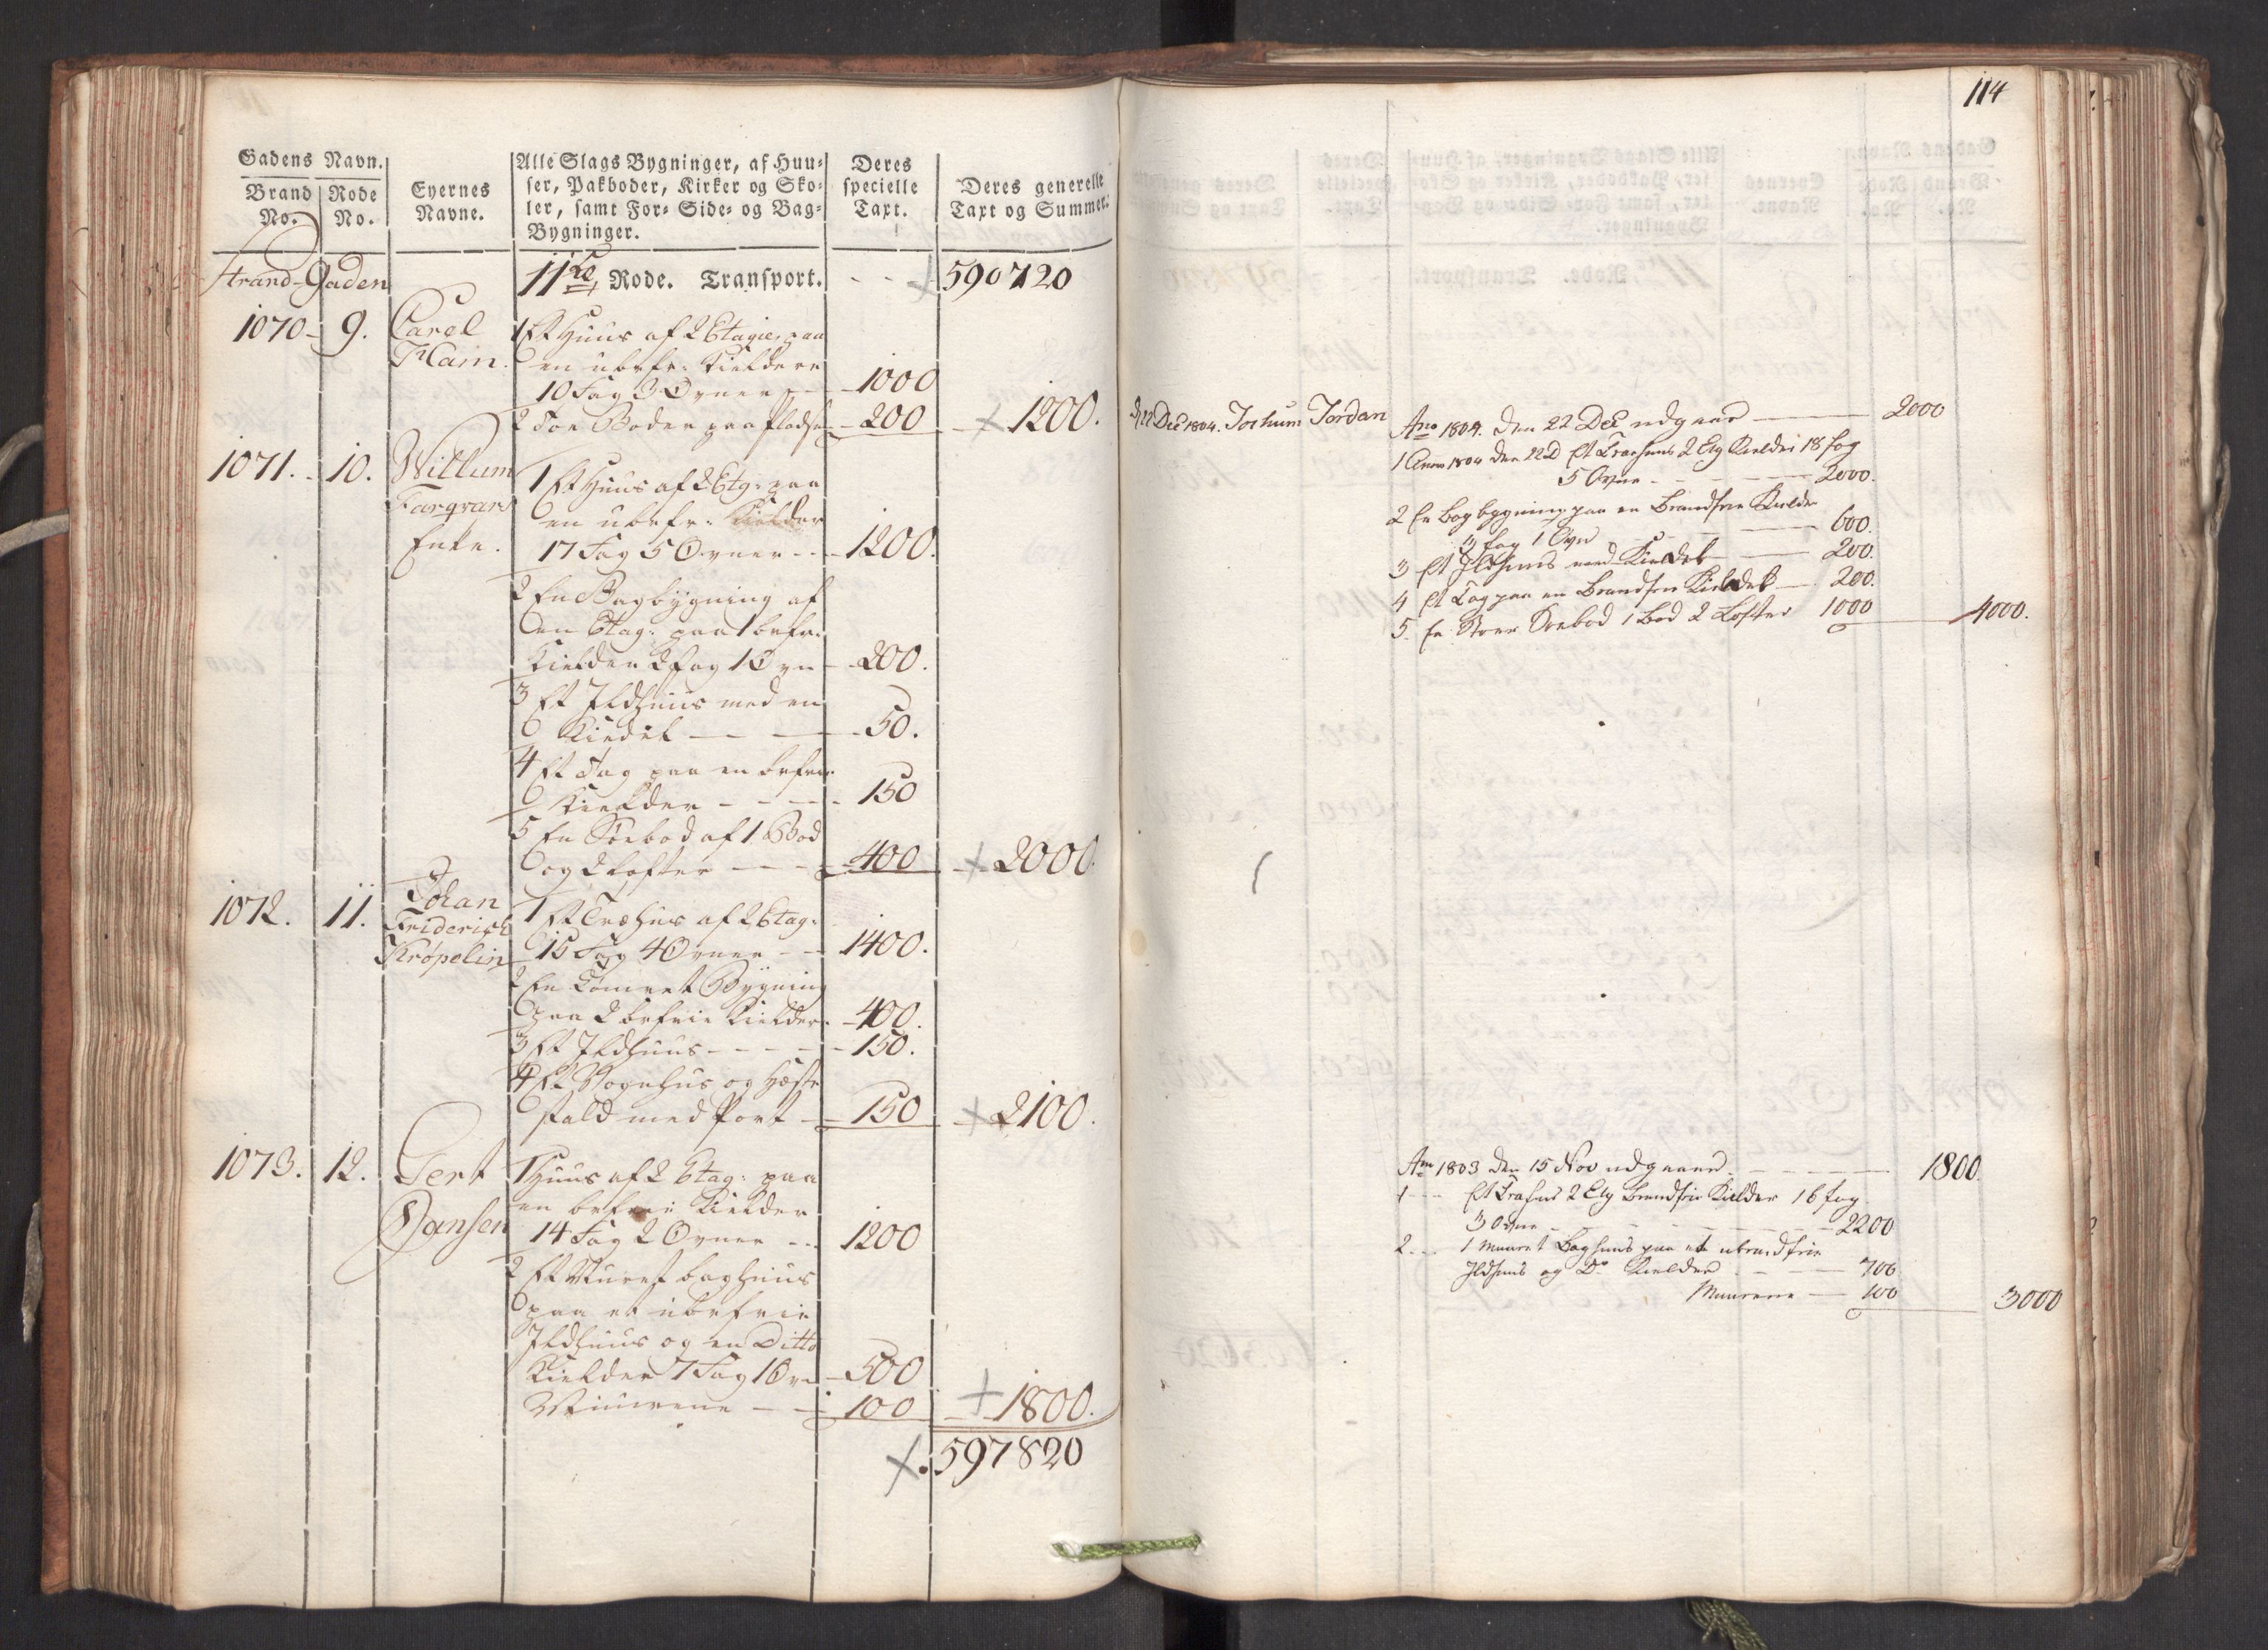 Gadens Navn.
Brand No.
Rode No.
Eyernes Navne.
Alle Slags Bygninger, af Huu-
ser, Pakboder, Kirker og Sko-
ler, samt For- Side- og Bag-
Bygninger.
Deres specielle Taxt.
Deres generelle Taxt og Summer.
Strand-Gaden 11te Rode. Transport. - - 590720
1070 - 9. Carel 1 Et Huus af 2 Etagier paa
Klain. en ubrfr: Kieldere
10 Fag 3 Ovner - 1000
2 Boder paa - 200 - 1200.
1071. - 10. Willum 1 Et Huus af 2 Etg: paa
en ubrfr: Kielder
Enke. 17 Fag 5 Ovner - - 1200.
2 En Bagbÿgning af
en Etag: paa 1 brfr:
Kielder 2 Fag 1 Ovn - 200.
3 Et Ildhuus med en
Kiedel - - - 50.
4 Et Tag paa en brfrie
Kielder - - - - 150
5 En Søebod af 1 Bod
og 2 Lofter - - - 400 - 2000.
1072. 11. Johan 1 Et Træhus af 2 Etag:
Friderich 15 Fag 4 Ovner - - 1400.
Krøpelin
2 En Tømret Bÿgning
paa 2 brfrie Kielder. - 400.
3 Et Ildhuus - - - - - 150.
4 Et Vognhus og Hæste
stald med Port - 150 - 2100.
1073. 12. Gert 1 Huus af 2 Etag: paa
Hansen en brfrie Kielder
14 Fag 2 Ovner - - 1200
2 Et Muret baghuus
paa et ubrfrie
Ildhuus og en Ditto
Kielder 7 Fag 1 Ovn - 500
Muurene - - 100 - 1800.
597820
114
d 22 Dec 1804. Jochum Jordan Ano 1804. den 22 Dec udgaar - 2000
1 Anno 1804 den 22 D Et Træhuus 2 Etg Kieldri 18 fag
5 Ovne - - - - 2000.
2 En bagbygning paa en Brandfrie Kielder
fag 1 Ovn - - 600.
3 Et Ildhuus med Kiedel - - 200.
4 Et Tag paa en Brandfrie Kielder - 200.
5. En Stoer Søebod 1 Bod 2 Lofter 1000 4000.
Ano 1803 den 15 Nov udgaaer - - - - - 1800.
1 - - Et Træhus 2 Etg Brandfrie Kielder 16 fag
3 Ovne - - - - - - 2200
2 - - 1 Muuret Baghuus paa et ubrandfrie
Ildhuus og Do Kielder - - - 700
Muurene - 100 3000